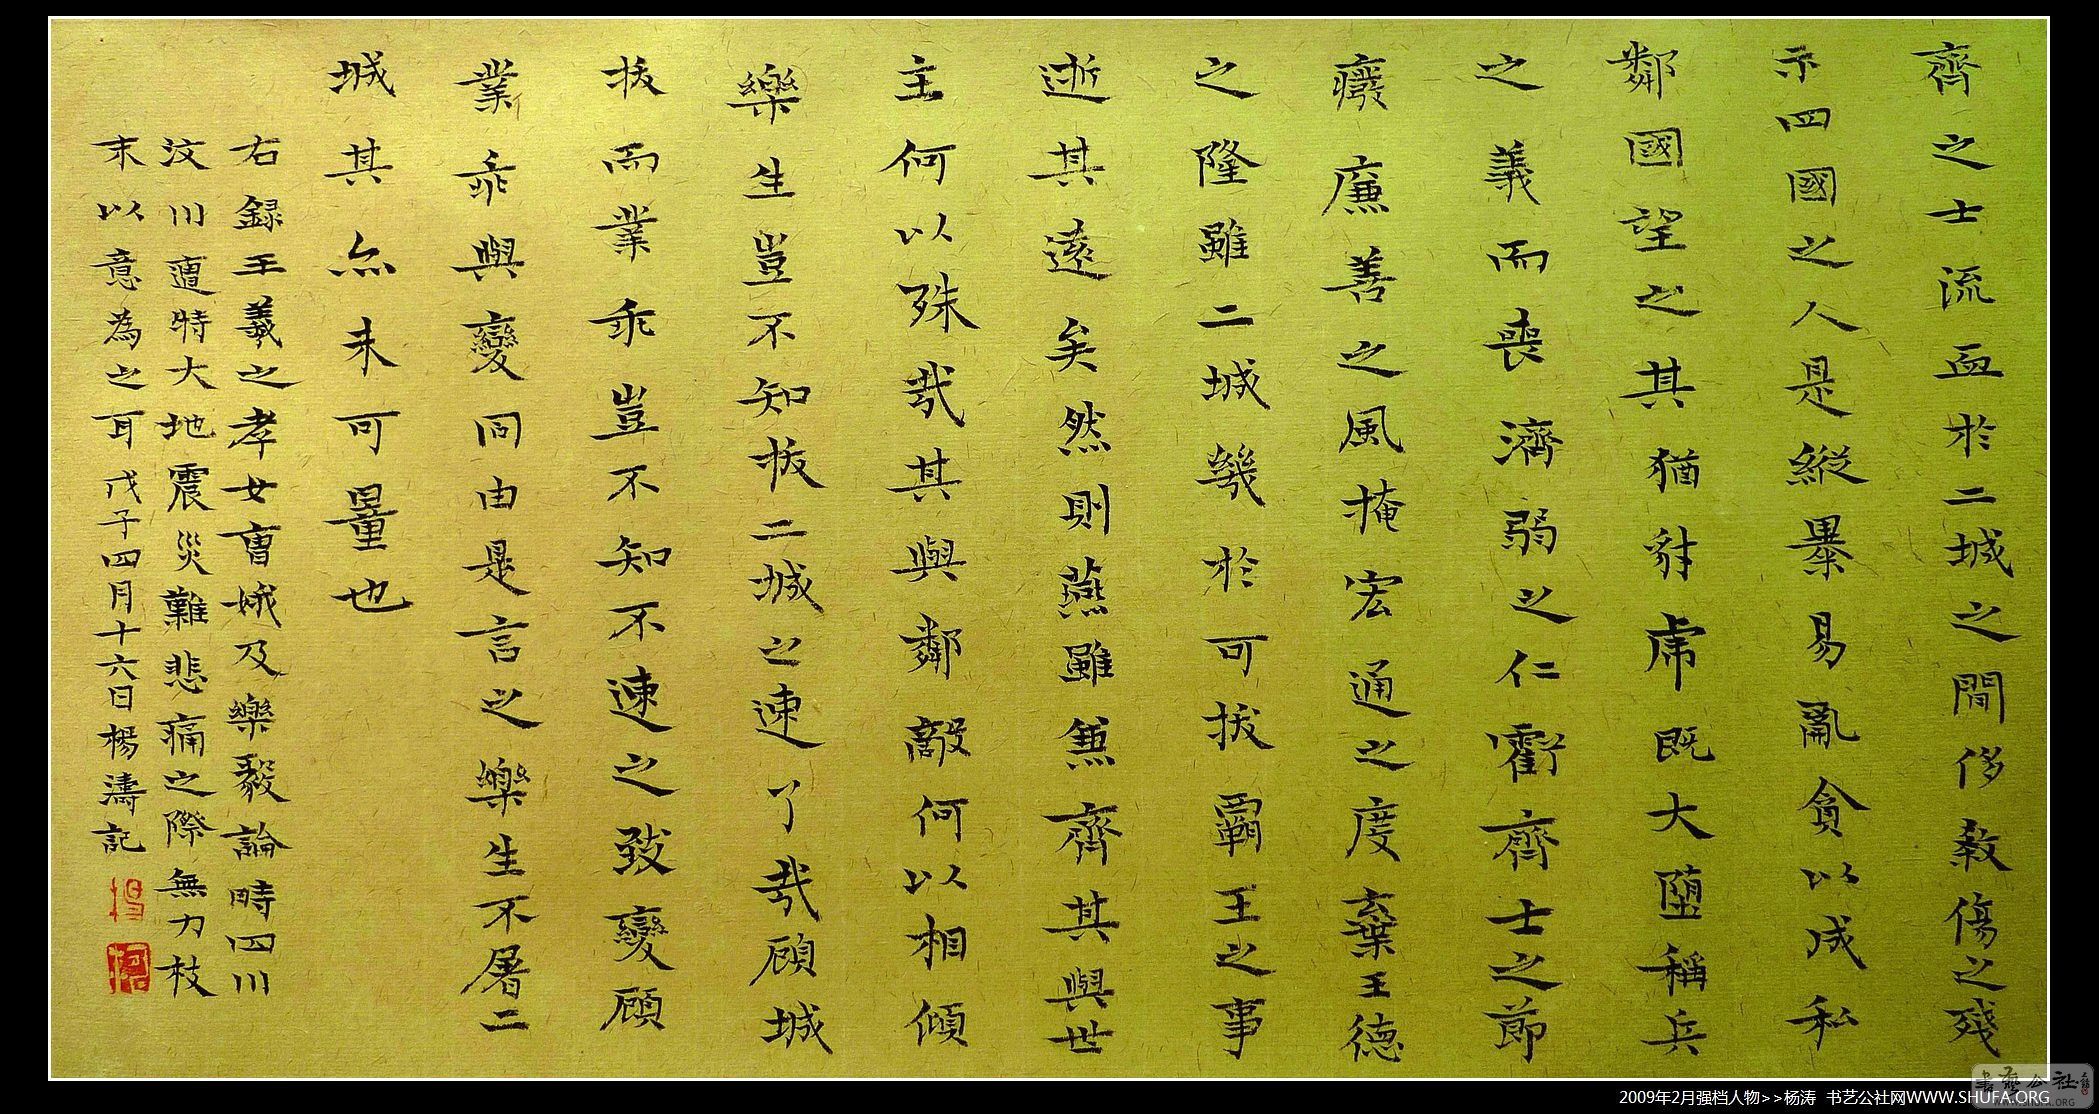 齊之士流血於二城之間侈殺傷之殘
示四國之人是縱暴易亂貪以成私
鄰國望之其猶豺虎既大堕稱兵
之義而喪濟弱之仁虧齊士之節
癈廉善之風掩宏通之度棄王德
之隆雖二城幾於可拔霸王之事
逝其遠矣然則燕雖兼齊其與世
主何以殊哉其與鄰敵何以相傾
樂生豈不知拔二城之速了哉顧城
拔而業乖豈不知不速之致變顧
業乖與變同由是言之樂生不屠二
城其亦未可量也
右録王羲之孝女曹娥及樂毅論時四川
汶川遭特大地震災難悲痛之際無力枝
末以意為之耳戊子四月十六日楊濤記
2009年2月强档人物>>杨涛 书艺公社网WWW.SHUFA.ORG